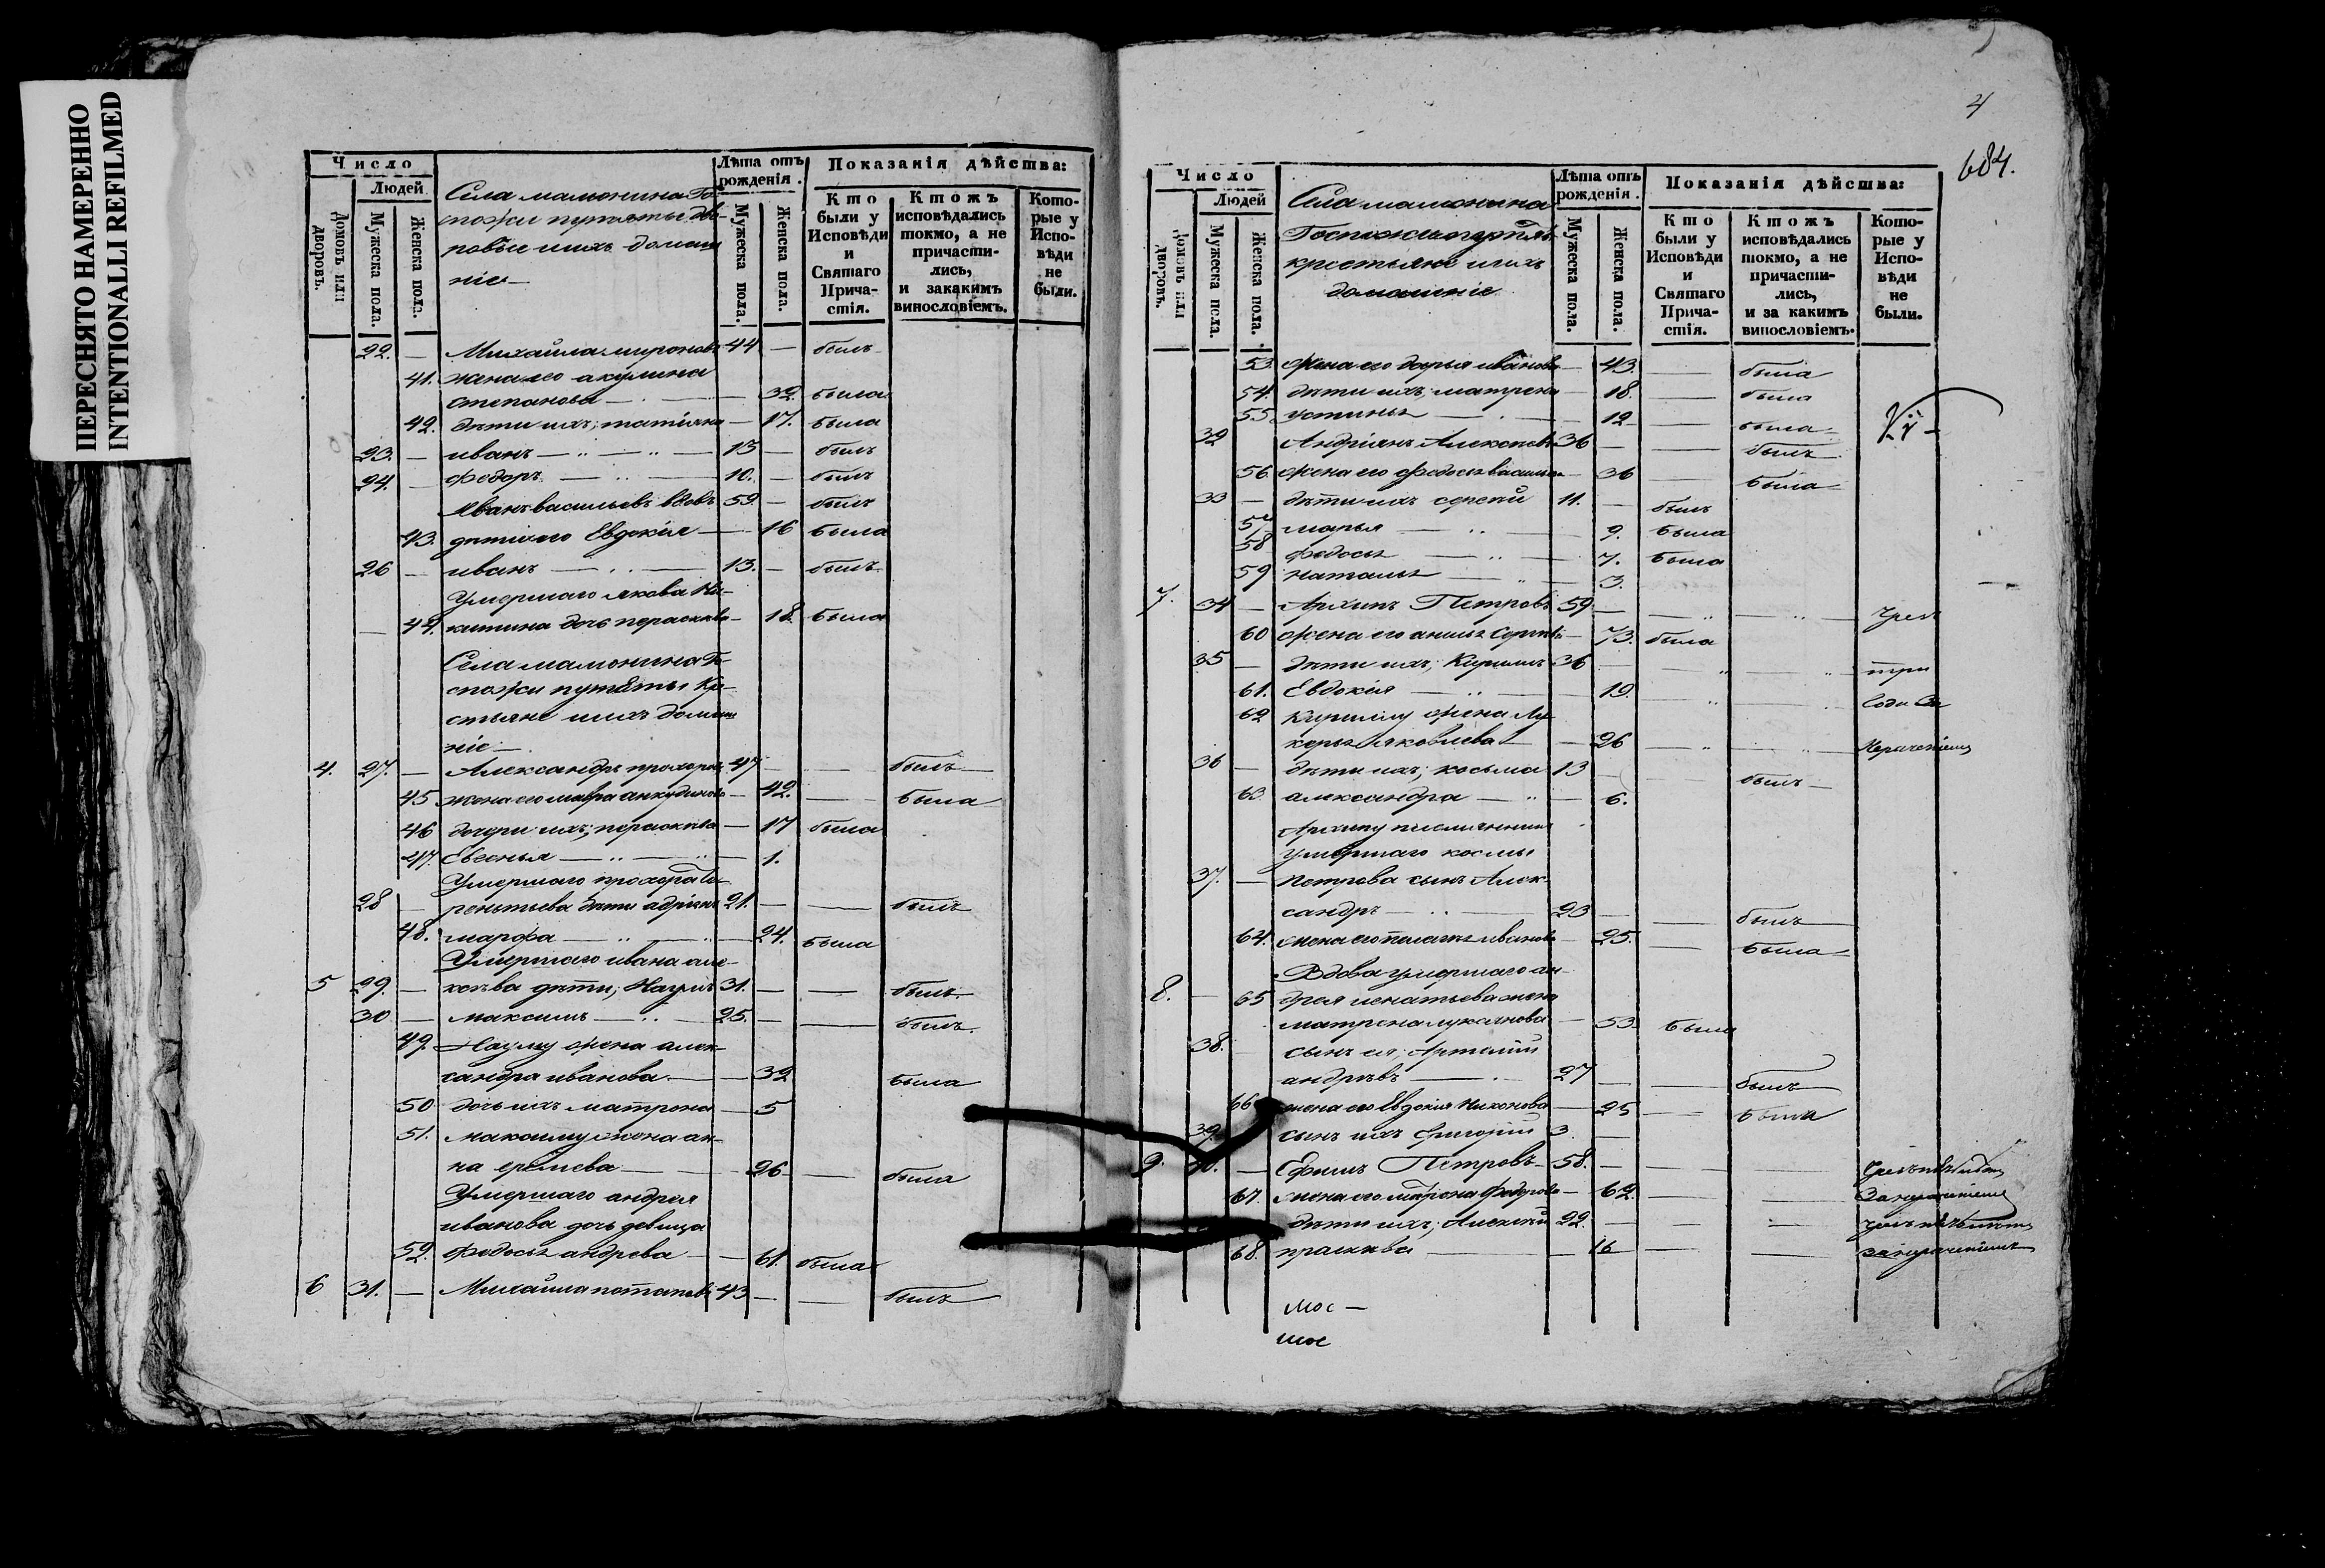 ПЕРЕСНЯТО НАМЕРЕННО
INTENTIONALLI REFILMED
Число
Людей
Домовъ или дворовъ.
Мужеска пола.
Женска пола.
Села мамонина Го-
спожи путяты дво-
ровые ихъ домаш
ніе
Лѣта отъ рожденія.
Мужеска пола.
Женска пола.
Показанія дѣйства:
Кто были у Исповѣди и Святаго Прича-стія.
Ктожъ исповѣдались токмо, а не причасти-лись, и закакимъ винословіемъ.
Кото-рые у Испо-вѣди не были.
22. — Михайла мироновъ 44 — былъ
41. жена его акулина
степанова — 39 была
42. дѣти ихъ; татіяна — 17. была
23. — иванъ — 13 — былъ
24. — федоръ — 10. — былъ
Иванъ васильевъ вдовъ 59. — былъ
43. дѣти его Евдокія — 16 была
26 — иванъ — 13. — былъ
Умершаго якова Ни-
44. китина дочь парасковья — 18. была
Села мамонина Го-
спожи путяты Кре-
стьяне ихъ домаш
ніе
4. 27. — Александръ прохоровъ 47 — — былъ
45 жена его мавра анкудинова — 42. — была
46 дочери ихъ; парасковья — 17 была
47. Евгенья — 1.
Умершаго прохора Ва-
28 — дѣти адріянъ 21. — — былъ
48. марфа — 24. была
Умершаго ивана але-
5 29. — ксѣва дѣти; Наумъ 31. — — былъ
30 — максимъ — 25. — — былъ
49. Науму жена алек-
сандра иванова — 32 была
50 дочь ихъ матрена — 5
51. максиму жена ан-
на ереміева — 26 — была
Умершаго андрея
иванова дочь девица
52. федосья андрева — 61. была
6 31. — Михайла потаповъ 43 — — былъ
4
684.
Число
Людей
Домовъ или дворовъ.
Мужеска пола.
Женска пола.
Села мамонина
Госпожи путяты
крестьяне ихъ
домашніе
Лѣта отъ рожденія.
Мужеска пола.
Женска пола.
Показанія дѣйства:
Кто были у Исповѣди и Святаго Прича-стія.
Ктожъ исповѣдались токмо, а не причасти-лись, и за какимъ винословіемъ.
Кото-рые у Испо-вѣди не были.
53. жена его дарья иванова — 43. — была
54. дѣти ихъ; матрена — 18. — была
55 устинья — 12 — была
32 Андріянъ Алексѣевъ 36 — — былъ
56 жена его федосья васильева — 36 — была
33 — дѣти ихъ сергѣй 11. — былъ
57 марья — 9. была
58 федосья — 7. была
59 наталья — 3.
7. 34 — Архипъ Петровъ 59 — — — чрез
60 жена его анисья Сергѣева — 73. была
35 — дѣти ихъ; Кирилъ 36 — — — три
61. Евдокія — 19. — — года За
62 Кирилу жена Лу-
керья яковлева — 26 — — Нерачениемъ
36 — дѣти ихъ; косьма 13 — — былъ
63. александра — 6.
Архипу племянникъ
умершаго космы
37. — петрова сынъ Алек-
сандръ — 23 — — былъ
64. жена его пелагея иванова — 25. — была
Вдова умершаго ан-
8. — 65 дрея игнатьева жена
матрена лукьянова — 53 была
38. — сынъ ея; Артемій
андрѣевъ — 27 — — былъ
66 жена его Евдокія Никонова — 25 — была
39. сынъ ихъ Григорій 3 —
9. 40. — Ефимъ Петровъ 58. — — —
67. жена его матрона федорова — 62. — —
дѣти ихъ; Алексѣй 22. — — —
68. прасковья — 16 — — занерачениемъ
мос —
мос